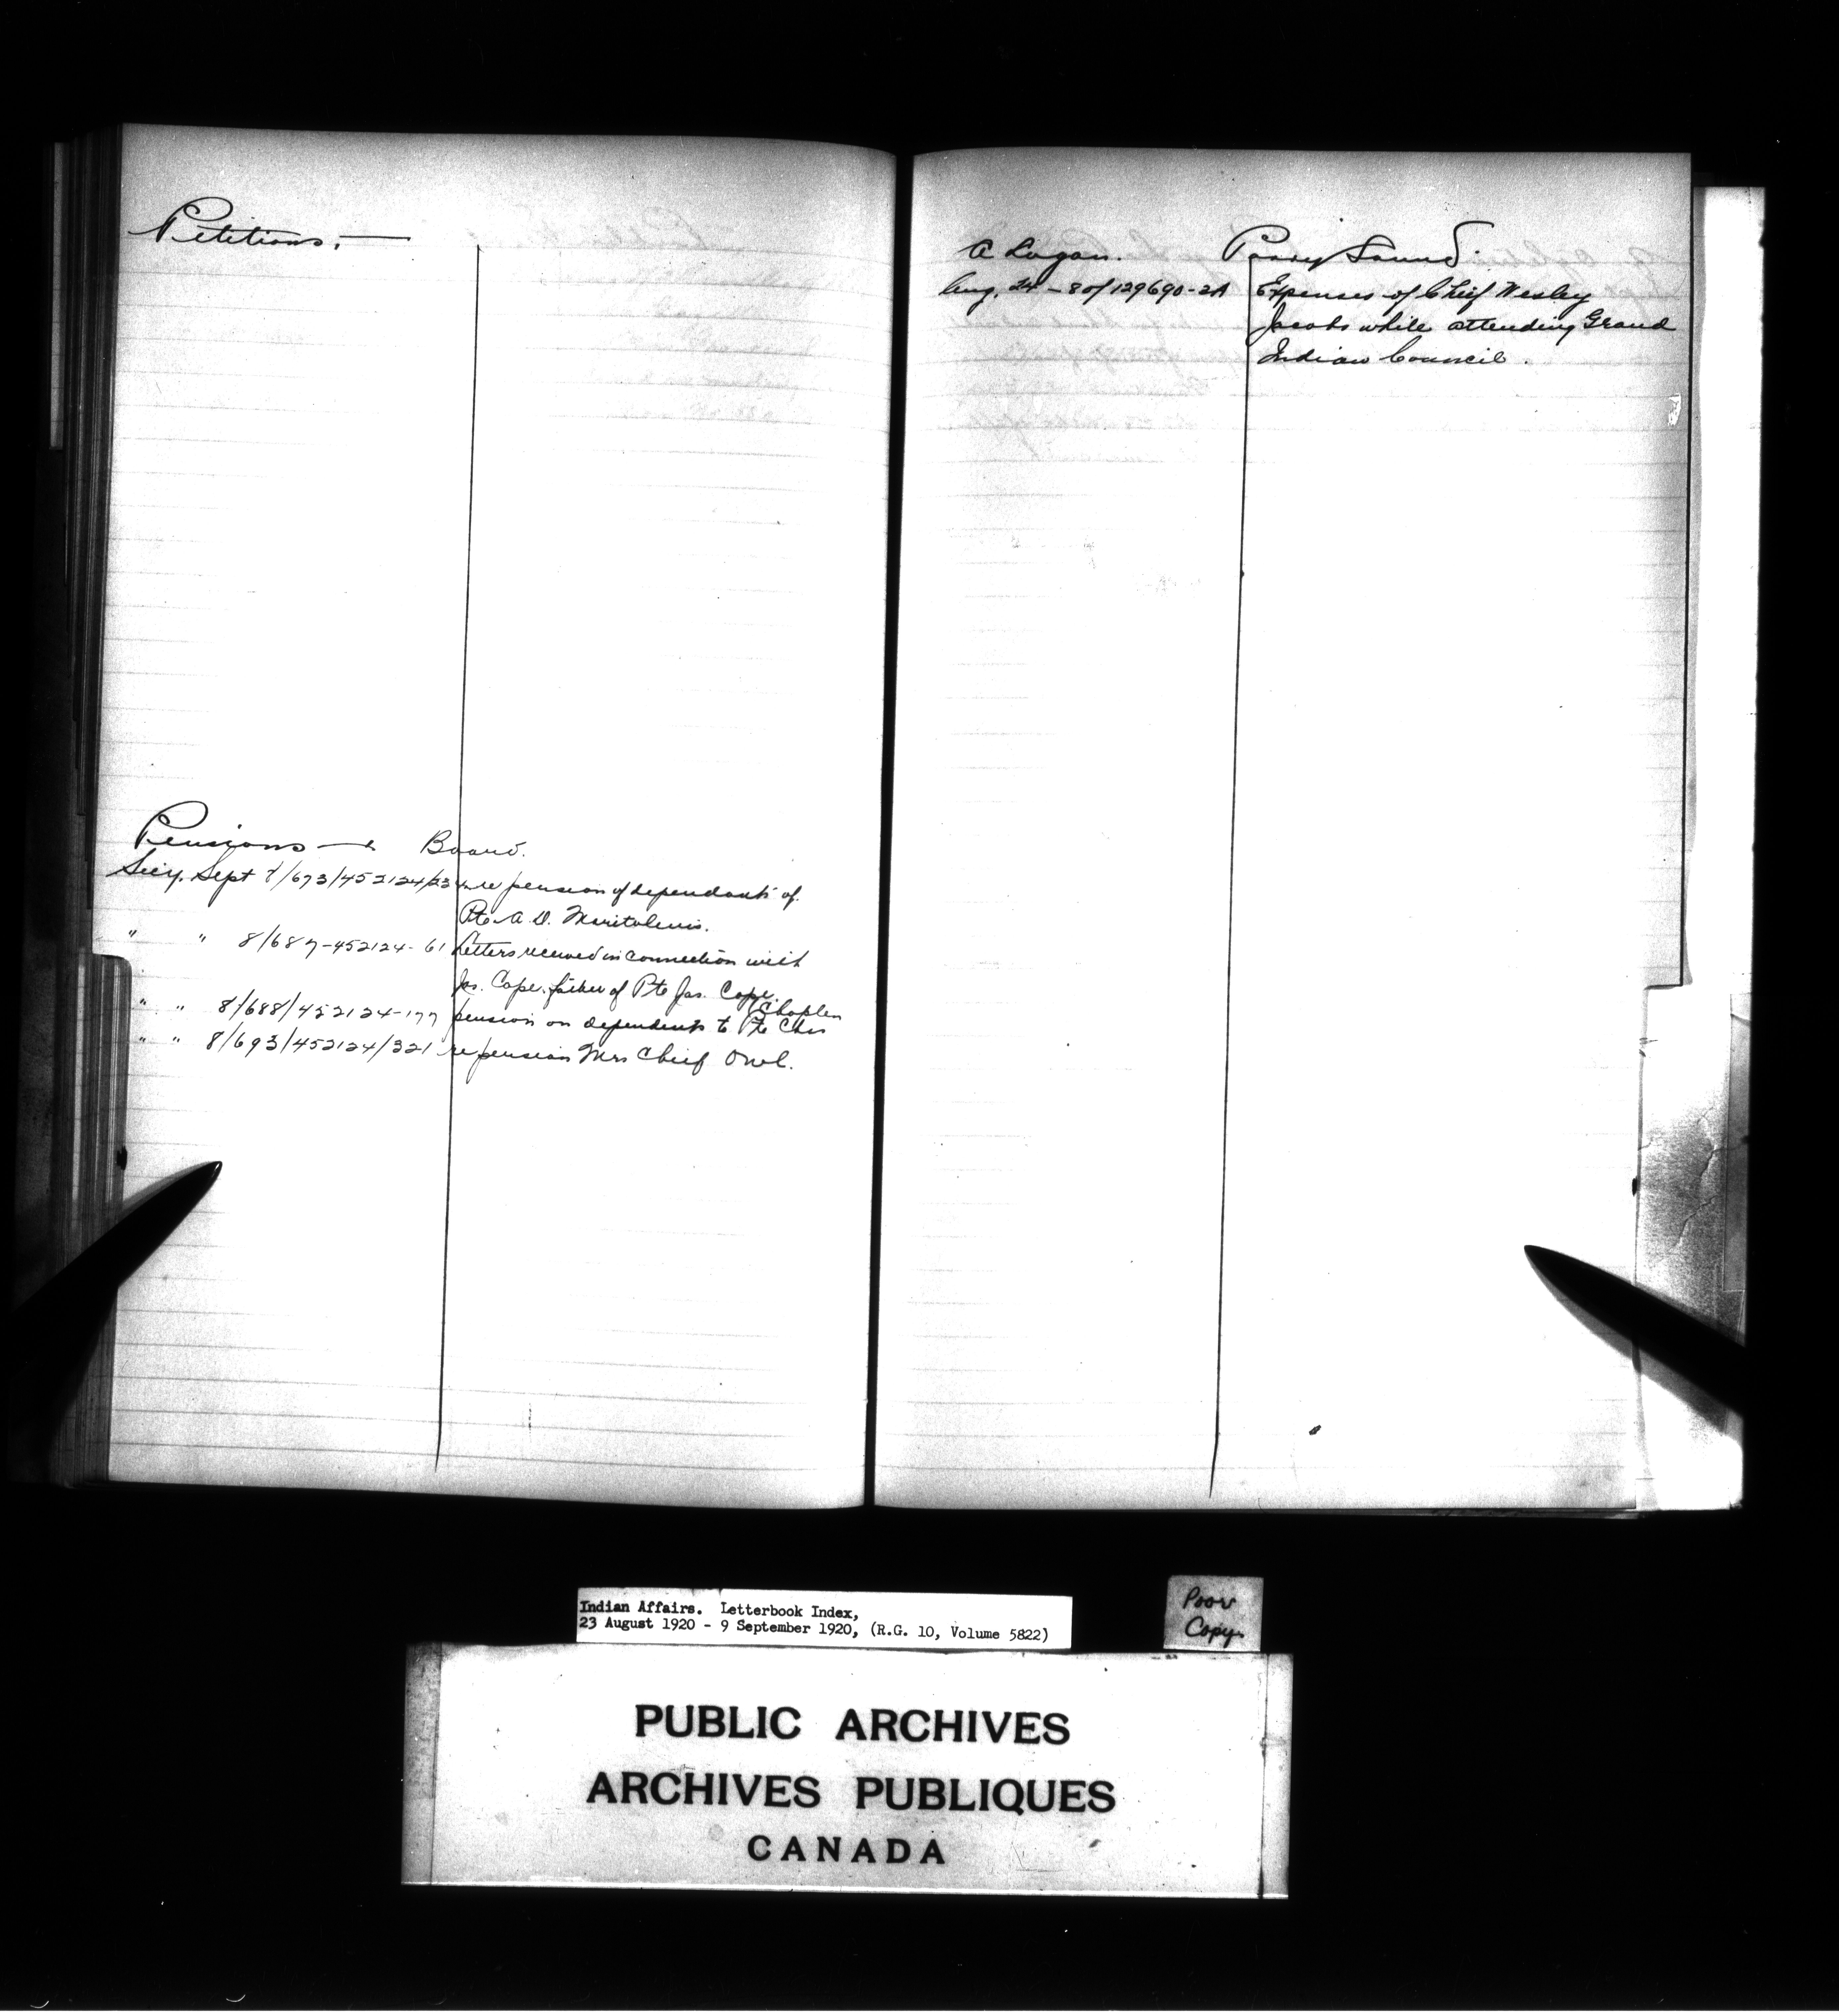 Petitions. —
Pensions — Board.
Secy. Sept 8/673/452124/234 re pension of dependants of
Pte A. D.
" " 8/687-452124-61 Letters received in connection with
Jas. Cope, father of Pte Jas. Cope.
" " 8/688/452124-177 pension on dependents to Pte Chas Chaplen
" " 8/693/452124/321 re pension Mrs Chief Owl.
A Logan. Parry Sound.
Aug. 24 - 80/129690-2A Expenses of Chief Wesley
Jacobs while attending Grand
Indian Council.
Indian Affairs. Letterbook Index,
23 August 1920 - 9 September 1920, (R.G. 10, Volume 5822)
Poor
Copy.
PUBLIC ARCHIVES
ARCHIVES PUBLIQUES
CANADA